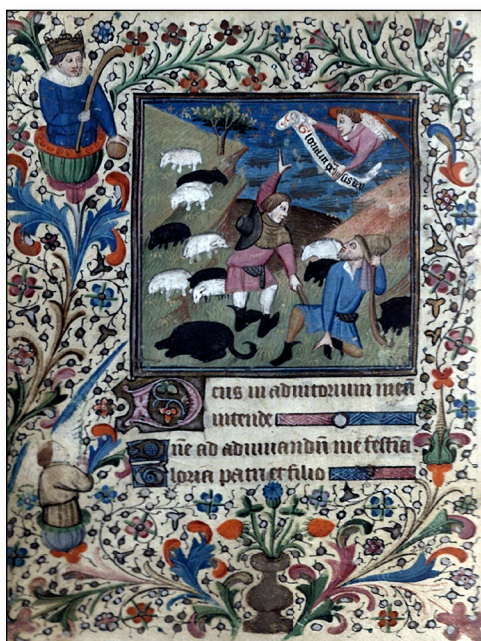 Gloria in
Deus in adiutorium meũ
intende
Dñe ad adiuuandũ me festīa
Gloria patri et filio